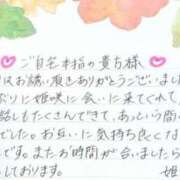 ご自宅本指の貴方様
はお誘い頂きありがとうございまし
ぶりに姫咲に会いに来てくれて
話もたくさんできて、あっという間に
でした。お互いに気持ち良くな
です。またお時間が合いました
ております。 姫